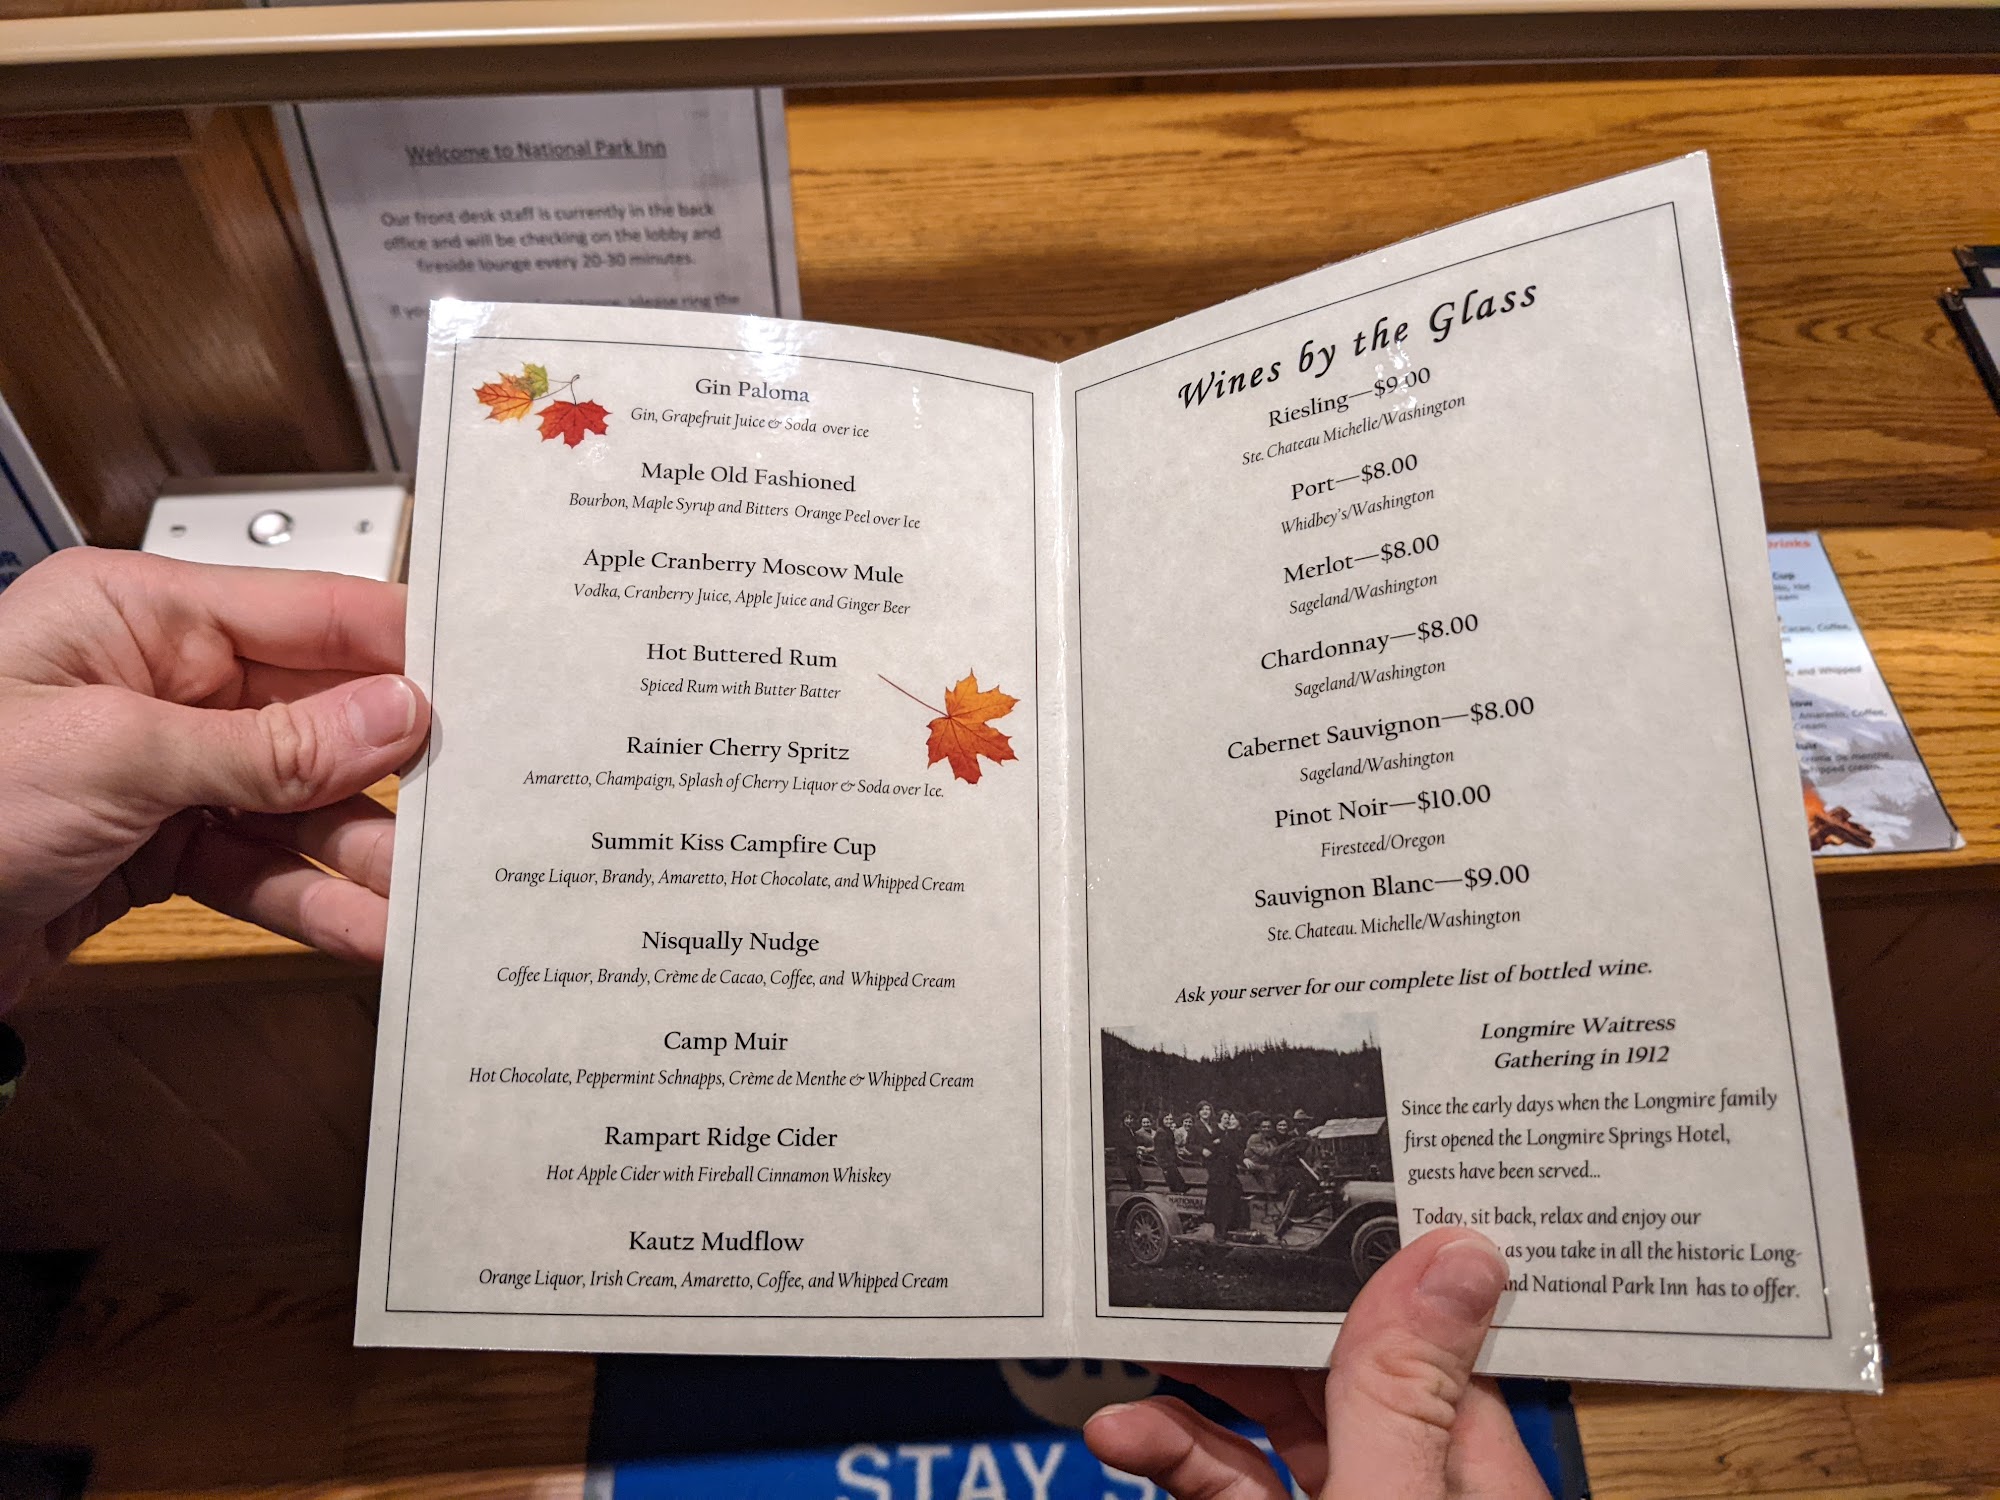 Welcome to National Park Inn
Our front desk staff is currently in the back
office and will be checking on the lobby and
fireside lounge every 20-30 minutes.
If you please ring the
Gin Paloma
Gin, Grapefruit Juice & Soda over ice
Maple Old Fashioned
Bourbon, Maple Syrup and Bitters Orange Peel over Ice
Apple Cranberry Moscow Mule
Vodka, Cranberry Juice, Apple Juice and Ginger Beer
Hot Buttered Rum
Spiced Rum with Butter Batter
Rainier Cherry Spritz
Amaretto, Champaign, Splash of Cherry Liquor & Soda over Ice.
Summit Kiss Campfire Cup
Orange Liquor, Brandy, Amaretto, Hot Chocolate, and Whipped Cream
Nisqually Nudge
Coffee Liquor, Brandy, Crème de Cacao, Coffee, and Whipped Cream
Camp Muir
Hot Chocolate, Peppermint Schnapps, Crème de Menthe & Whipped Cream
Rampart Ridge Cider
Hot Apple Cider with Fireball Cinnamon Whiskey
Kautz Mudflow
Orange Liquor, Irish Cream, Amaretto, Coffee, and Whipped Cream
Wines by the Glass
Riesling—$9.00
Ste. Chateau Michelle/Washington
Port—$8.00
Whidbey's/Washington
Merlot—$8.00
Sageland/Washington
Chardonnay—$8.00
Sageland/Washington
Cabernet Sauvignon—$8.00
Sageland/Washington
Pinot Noir—$10.00
Firesteed/Oregon
Sauvignon Blanc—$9.00
Ste. Chateau. Michelle/Washington
Ask your server for our complete list of bottled wine.
Longmire Waitress
Gathering in 1912
Since the early days when the Longmire family
first opened the Longmire Springs Hotel,
guests have been served...
Today, sit back, relax and enjoy our
as you take in all the historic Long-
and National Park Inn has to offer.
NATIONAL
Drinks
Cup
Cacao, Coffee,
and Whipped
Amaretto, Coffee,
Cream
crème de menthe,
whipped cream
STAY